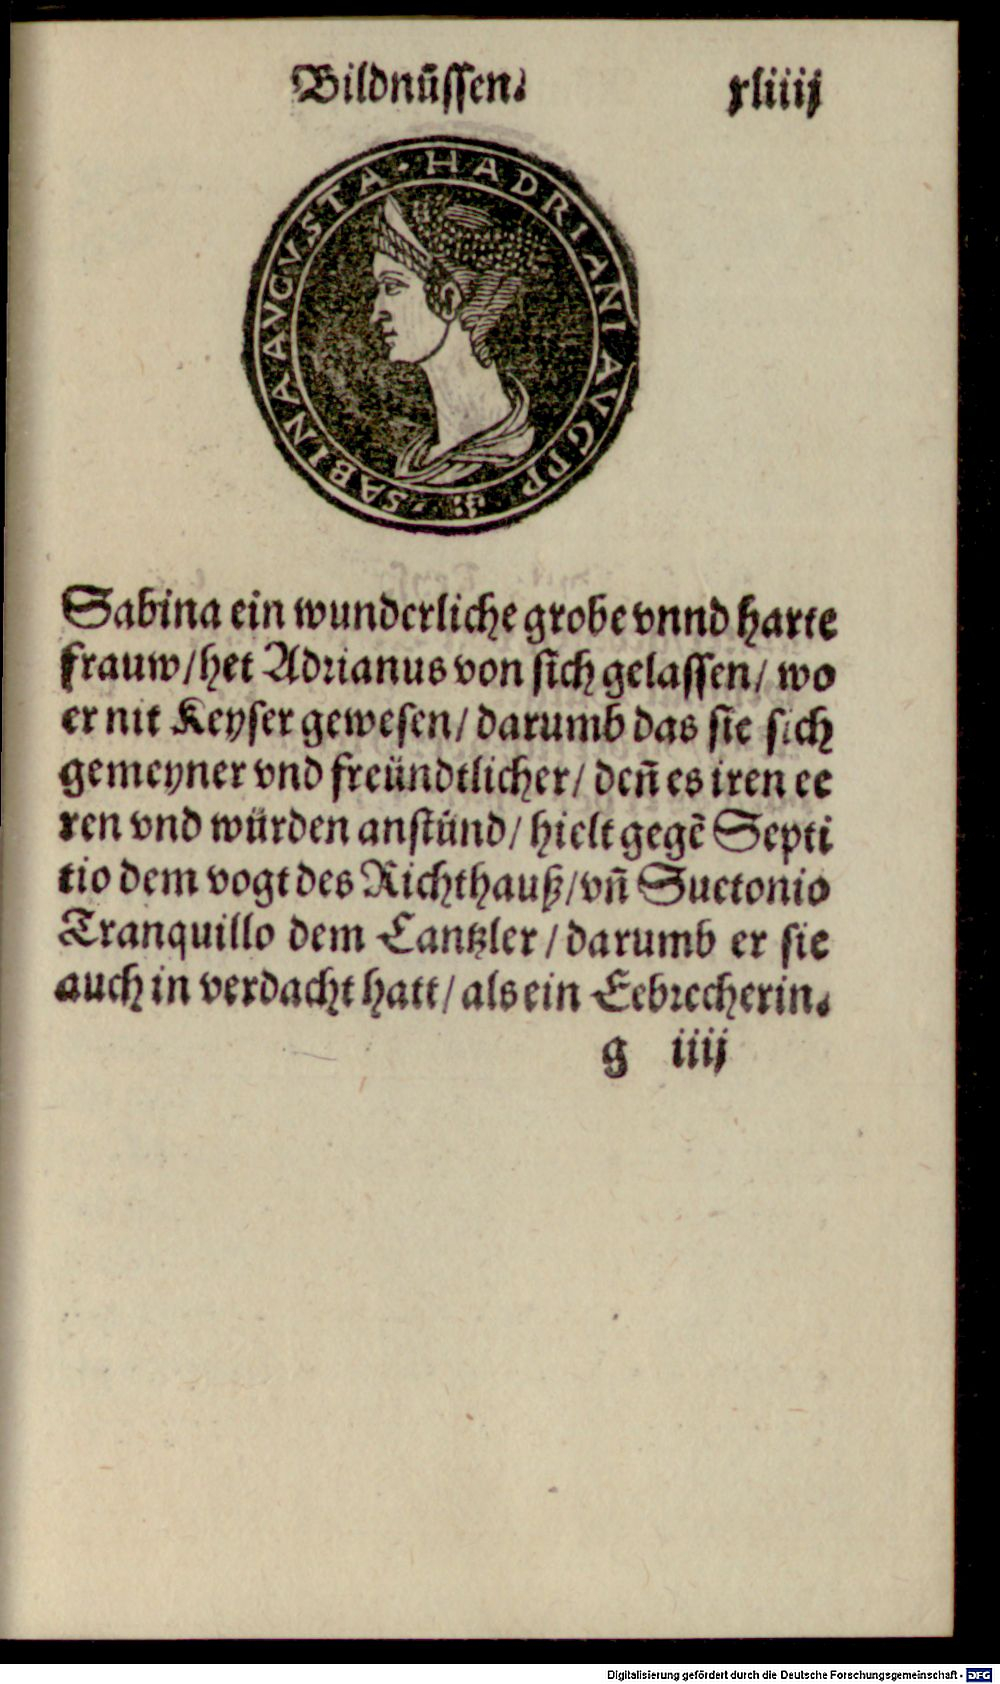 Bildnüssen. xliiij
SABINA AVGVSTA · HADRIANI AVG PP
Sabina ein wunderliche grobe vnnd harte
frauw/ het Adrianus von sich gelassen/ wo
er nit Keyser gewesen/ darumb das sie sich
gemeyner vnd freündtlicher/ deñ es iren ee
ren vnd würden anstünd/ hielt gegẽ Septi
tio dem vogt des Richthauß/ vñ Suetonio
Tranquillo dem Cantzler/ darumb er sie
auch in verdacht hatt/ als ein Eebrecherin.
g iiij
Digitalisierung gefördert durch die Deutsche Forschungsgemeinschaft - DFG